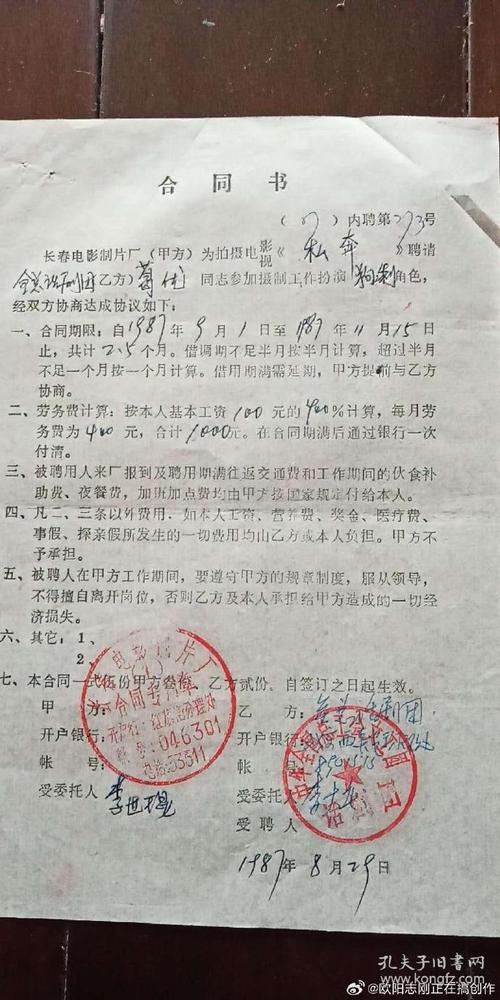 合同书
(87)内聘第273号
长春电影制片厂(甲方)为拍摄电影视《私奔》聘请
全总话剧团乙方)葛优 同志参加摄制工作扮演 角色,
经双方协商达成协议如下:
一、合同期限:自1987年9月1日至1987年11月15日
止,共计2.5个月。借调期不足半月按半月计算,超过半月
不足一个月按一个月计算。借用期满需延期,甲方提前与乙方
协商。
二、劳务费计算:按本人基本工资100元的400%计算,每月劳
务费为400元,合计1000元。在合同期满后通过银行一次
付清。
三、被聘用人来厂报到及聘用期满往返交通费和工作期间的伙食补
助费、夜餐费,加班加点费均由甲方按国家规定付给本人。
四、凡二、三条以外费用,如本人工资、营养费、奖金、医疗费、
事假、探亲假所发生的一切费用均由乙方或本人负担。甲方不
予承担。
五、被聘人在甲方工作期间,要遵守甲方的规章制度,服从领导,
不得擅自离开岗位,否则乙方及本人承担给甲方造成的一切经
济损失。
六、其它:1、
2、
七、本合同一式伍份甲方叁份,乙方贰份,自签订之日起生效。
甲方:
乙方:全总话剧团
开户银行:
开户银行:
帐号:
帐号:
受委托人
受委托人
受聘人
电影制片厂
合同专用章
046301
电话:53311
话剧团
1987年8月29日
孔夫子旧书网
www.kongfz.com
@欧阳志刚正在搞创作